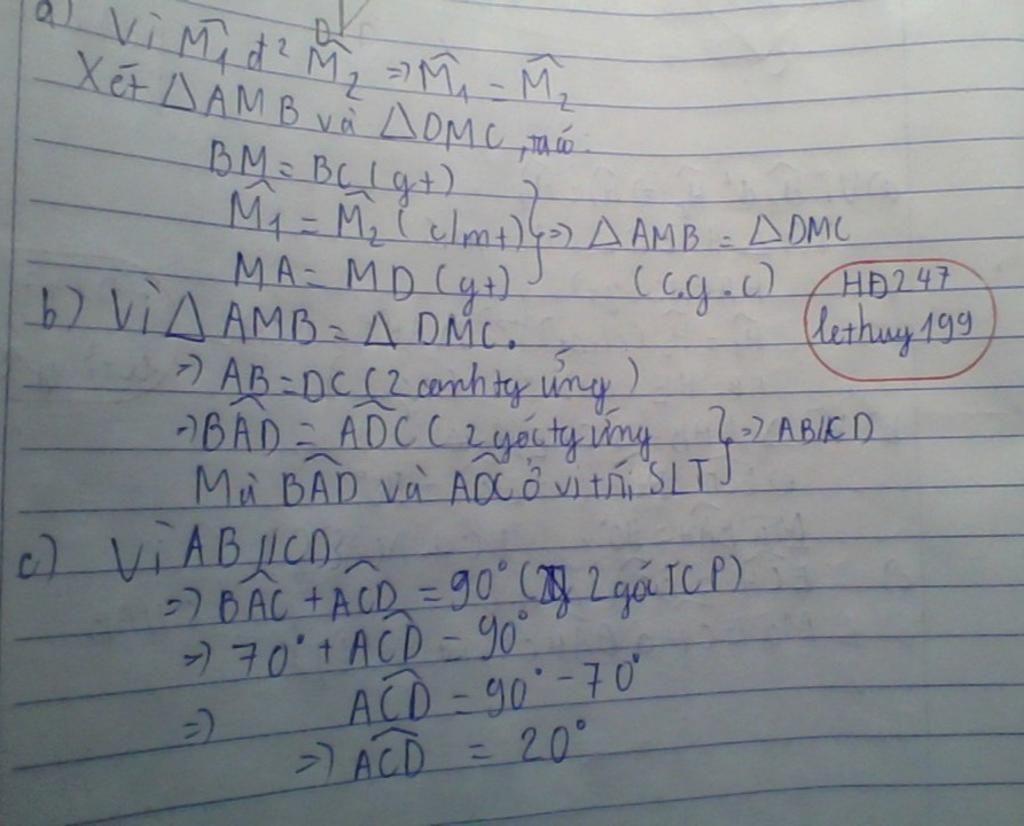 a) Vì M̂₁ đ² M̂₂ => M̂₁ = M̂₂
Xét ΔAMB và ΔDMC, ta có
BM = BC (gt)
M̂₁ = M̂₂ (c/mt) } => ΔAMB = ΔDMC
MA = MD (gt) (c.g.c)
HĐ247
lethuy199
b) Vì ΔAMB = ΔDMC.
=> AB = DC (2 cạnh tg ứng)
=> BÂD = ADC (2 góc tg ứng } => AB//CD
Mà BÂD và ADC ở vị trí SLT
c) Vì AB//CD
=> BÂC + ACD = 90° (2 góc TCP)
=> 70° + ACD = 90°
=> ACD = 90° - 70°
=> ACD = 20°